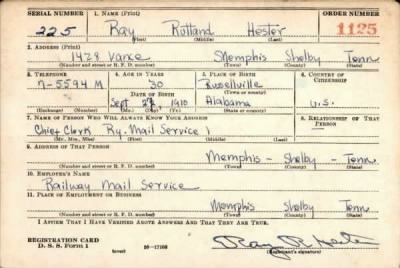 SERIAL NUMBER 1. NAME (Print) ORDER NUMBER
225 Ray Rutland Hester 1125
(First) (Middle) (Last)
2. ADDRESS (Print)
1428 Vance Memphis Shelby Tenn
(Number and street or R. F. D. number) (Town) (County) (State)
3. TELEPHONE 4. AGE IN YEARS 5. PLACE OF BIRTH 6. COUNTRY OF CITIZENSHIP
7-5594 M 30 Russellville
DATE OF BIRTH (Town or county)
Sept 1910 Alabama U.S.
(Exchange) (Number) (Mo.) (Day) (Yr.) (State or country)
7. NAME OF PERSON WHO WILL ALWAYS KNOW YOUR ADDRESS 8. RELATIONSHIP OF THAT PERSON
Chief Clerk Ry. Mail Service
(Mr., Mrs., Miss) (First) (Middle) (Last)
9. ADDRESS OF THAT PERSON
Memphis - Shelby - Tenn.
(Number and street or R. F. D. number) (Town) (County) (State)
10. EMPLOYER'S NAME
Railway Mail Service
11. PLACE OF EMPLOYMENT OR BUSINESS
(Number and street or R. F. D. number) (Town) (County) (State)
I AFFIRM THAT I HAVE VERIFIED ABOVE ANSWERS AND THAT THEY ARE TRUE.
REGISTRATION CARD
D. S. S. Form 1 (over) 16-17105 Ray R Hester
(Registrant's signature)